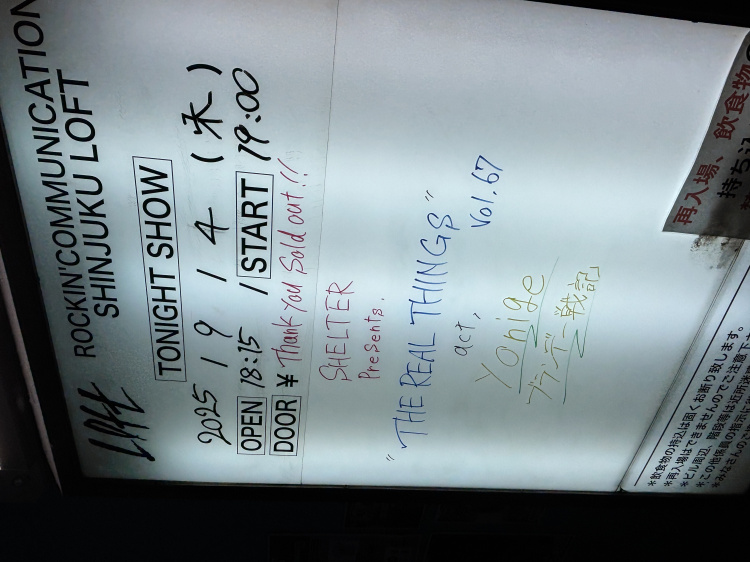 Loft
ROCKIN'COMMUNICATION
SHINJUKU LOFT
TONIGHT SHOW
2025 / 9 / 4 (木)
OPEN 18:15 / START 19:00
DOOR ¥ Thank you Sold out!!
SHELTER
Presents.
"THE REAL THINGS"
Vol.67
act,
yonige
ブランデー戦記
再入場、飲食物の
持ち込
※飲食物の持込は固くお断り致します。
※再入場はできませんのでご注意下さ
※ビル周辺、階段等は近所迷惑
※この他係員の指示
※みなさんの